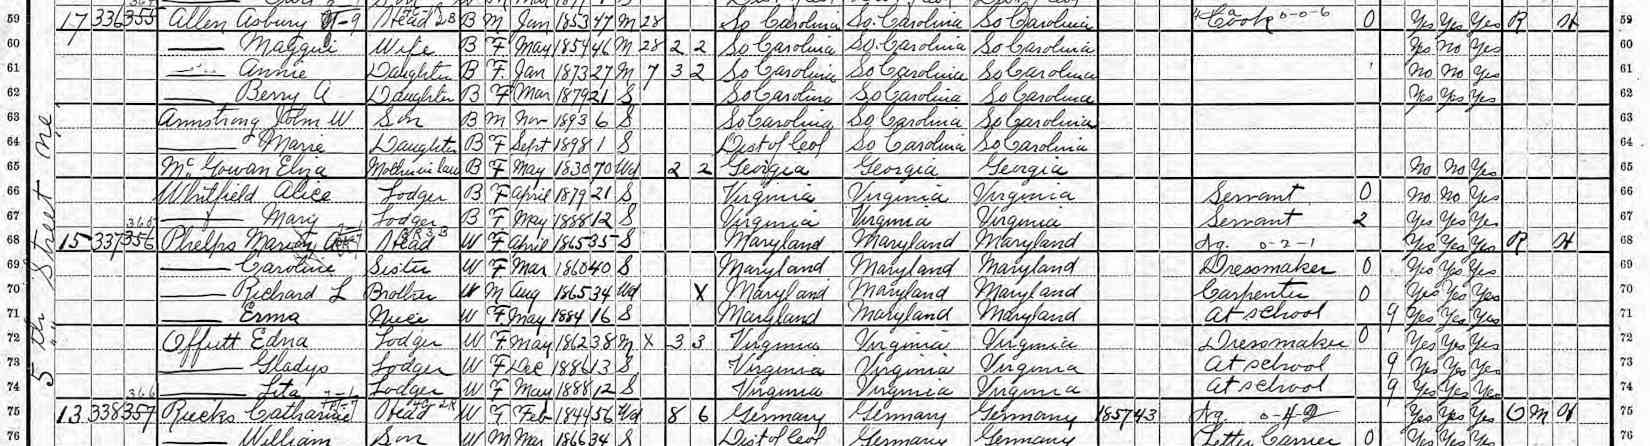 59 17 336 355 Allen Asbury Head B M Jan 1853 47 M 28 So Carolina So. Carolina So. Carolina Cook 0-0-6 0 Yes Yes Yes R H 59
60 —— Maggie Wife B F May 1854 46 M 28 2 2 So Carolina So. Carolina So Carolina Yes No Yes 60
61 —— Annie Daughter B F Jan 1873 27 M 7 3 2 So Carolina So Carolina So Carolina No No Yes 61
62 —— Berry A Daughter B F Mar 1879 21 S So Carolina So Carolina So Carolina Yes Yes Yes 62
63 Armstrong John W Son B M Nov 1893 6 S So Carolina So Carolina So Carolina 63
64 —— Marie Daughter B F Sept 1898 1 S Dist of Col So Carolina So Carolina 64
65 McGowan Eliza Mother in law B F May 1830 70 Wd 2 2 Georgia Georgia Georgia No No Yes 65
66 Whitfield Alice Lodger B F April 1879 21 S Virginia Virginia Virginia Servant 0 No No Yes 66
67 —— Mary Lodger B F May 1888 12 S Virginia Virginia Virginia Servant 2 Yes Yes Yes 67
68 15 337 356 Phelps Head W F April 1865 35 S Maryland Maryland Maryland 0-2-1 Yes Yes Yes R H 68
69 —— Caroline Sister W F Mar 1860 40 S Maryland Maryland Maryland Dressmaker 0 Yes Yes Yes 69
70 —— Richard L Brother W M Aug 1865 34 Wd X Maryland Maryland Maryland Carpenter 0 Yes Yes Yes 70
71 —— Erma Niece W F May 1884 16 S Maryland Maryland Maryland At school 9 Yes Yes Yes 71
72 Offutt Edna Lodger W F May 1862 38 M X 3 3 Virginia Virginia Virginia Dressmaker 0 Yes Yes Yes 72
73 —— Gladys Lodger W F Dec 1886 13 S Virginia Virginia Virginia At school 9 Yes Yes Yes 73
74 —— Lodger W F May 1888 12 S Virginia Virginia Virginia At school 9 Yes Yes Yes 74
75 13 338 357 Catharine Head W F Feb 1844 56 Wd 8 6 Germany Germany Germany 1857 43 Yes Yes Yes O M H 75
76 —— William Son W M Mar 1866 34 S Dist of Col Germany Germany Letter Carrier 0 Yes Yes Yes 76
5th Street Ne